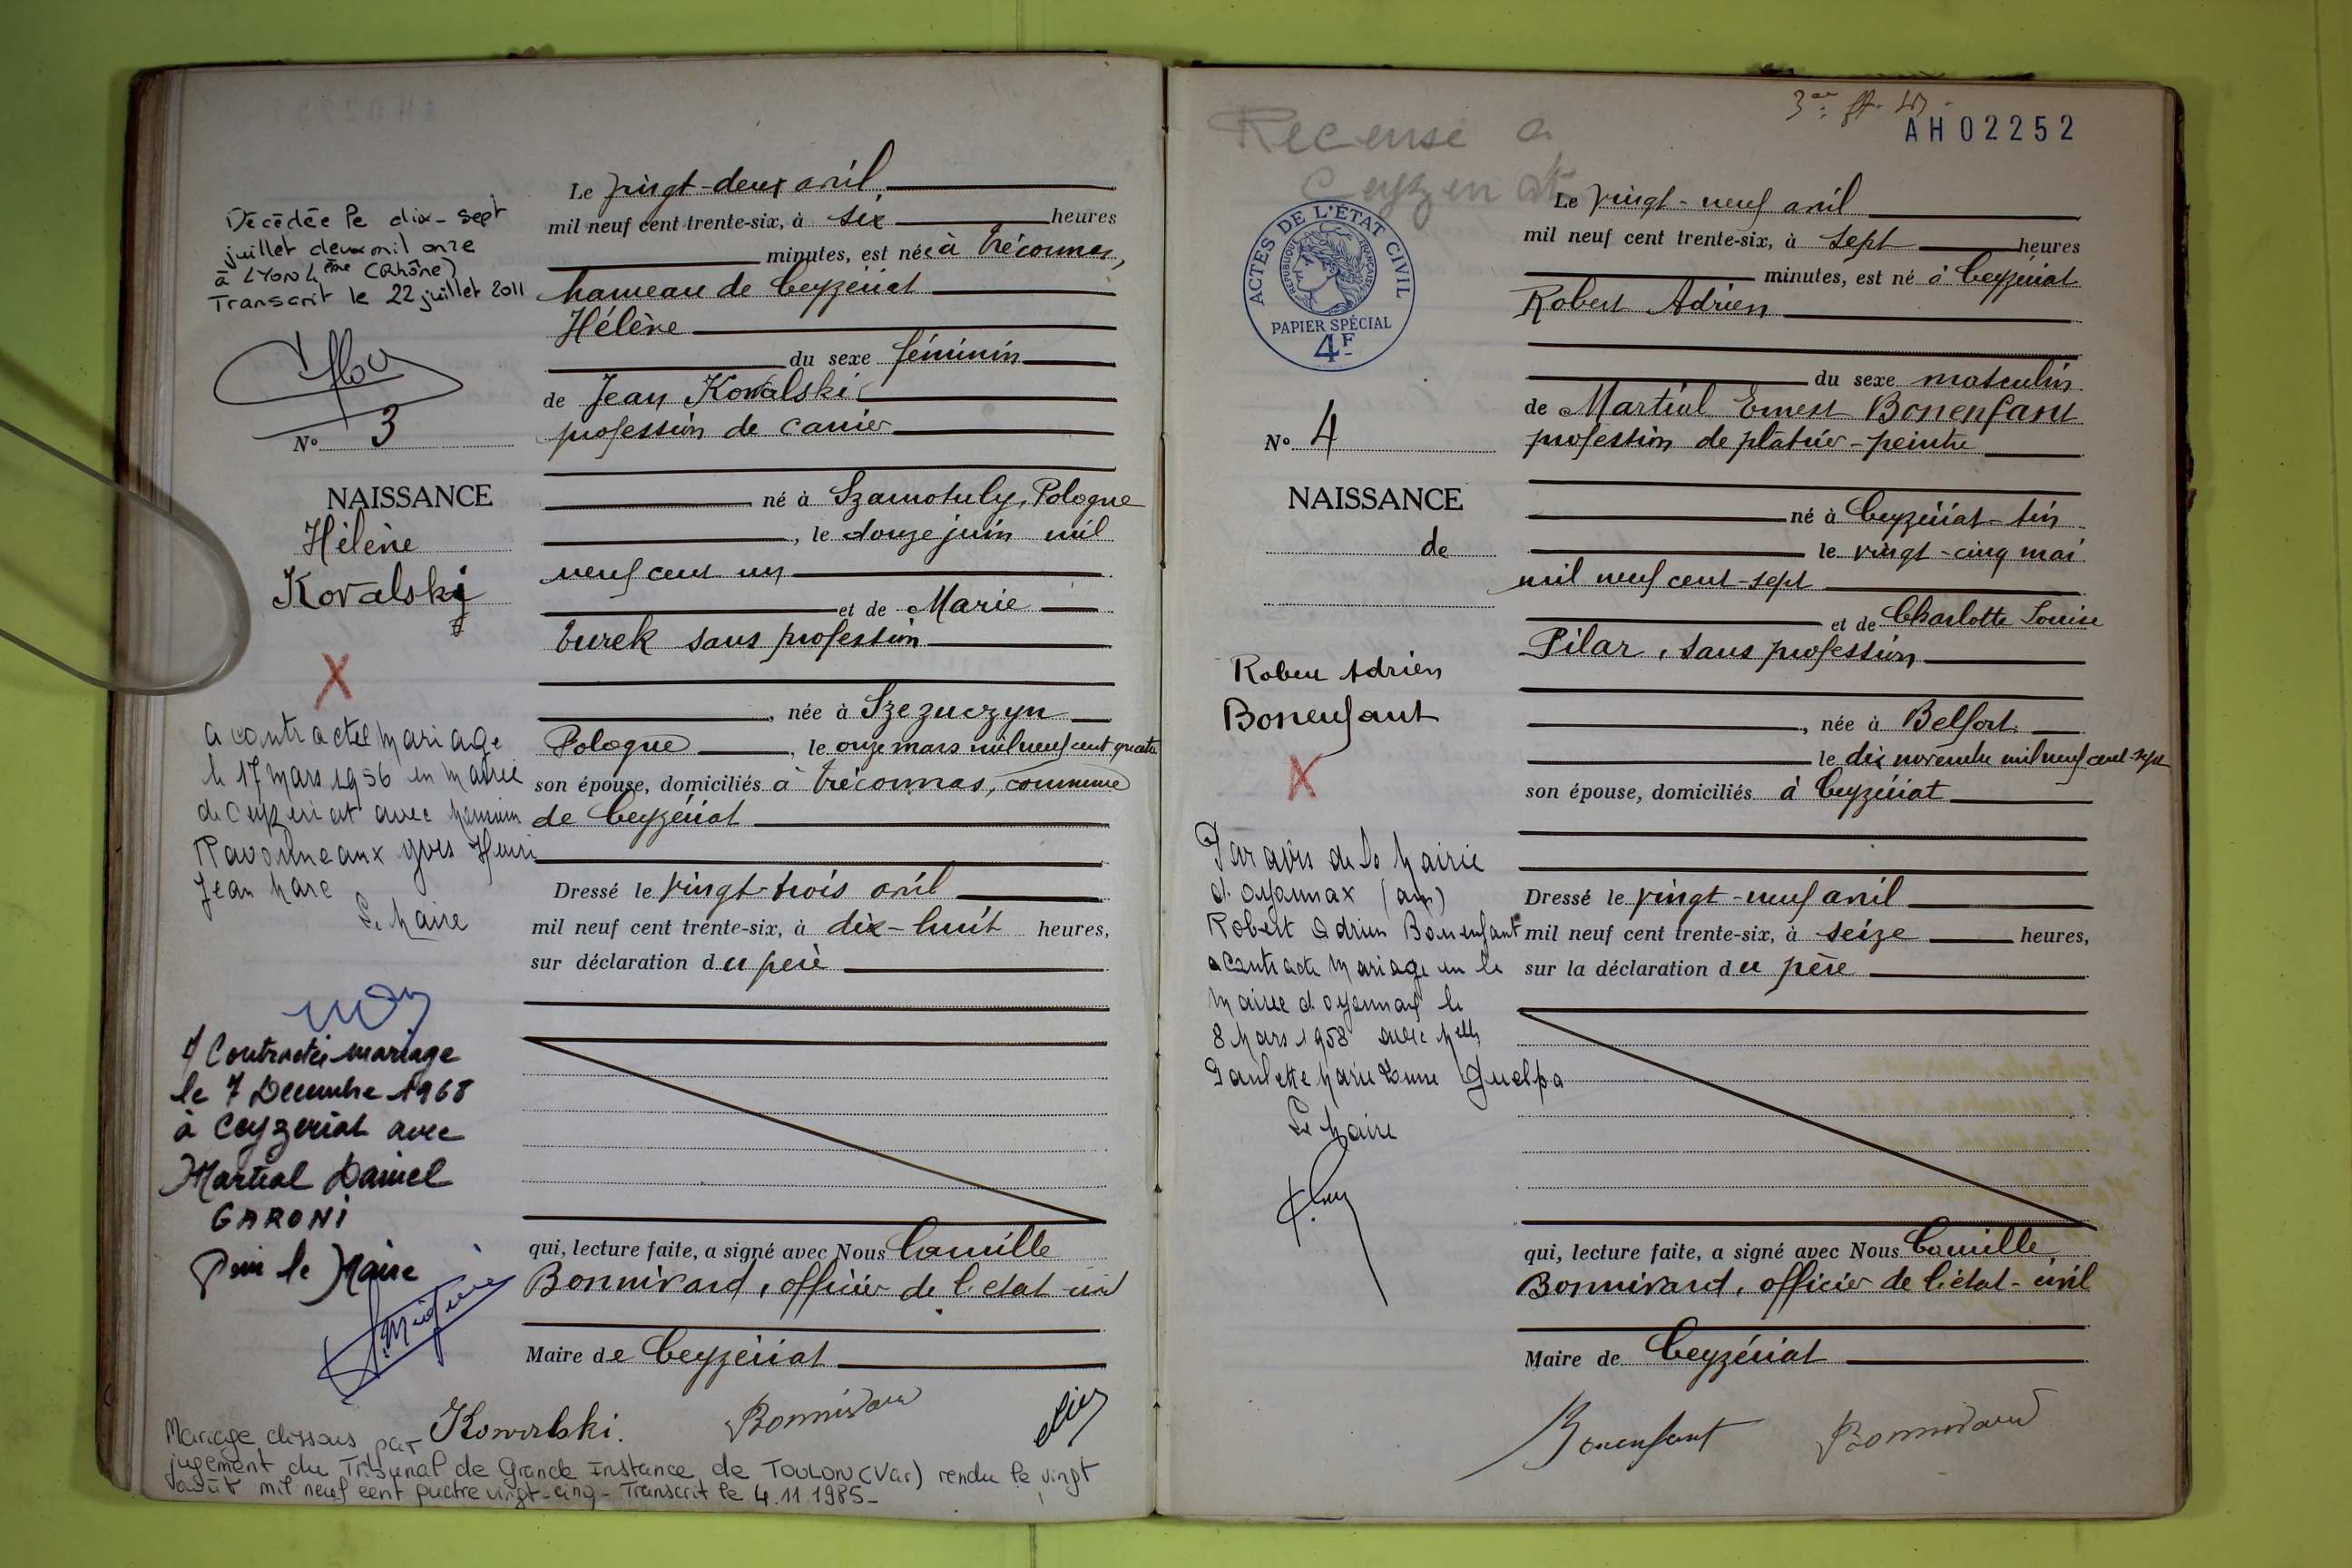 Le vingt-deux avril
mil neuf cent trente-six, à six heures
minutes, est née à Tréconnas,
hameau de Ceyzériat
Hélène
du sexe féminin
de Jean Kovalski
profession de carrier
né à Szamotuly, Pologne
, le douze juin mil
neuf cent un
et de Marie
Turek sans profession
, née à Szezuczyn
Pologne, le onze mars mil neuf cent quatre
son épouse, domiciliés à Tréconnas, commune
de Ceyzériat
Dressé le vingt-trois avril
mil neuf cent trente-six, à dix-huit heures,
sur déclaration du père
qui, lecture faite, a signé avec Nous Camille
Bonnivard, officier de l'état-civil
Maire de Ceyzériat
Kowalski.
Bonnivard
Décédée le dix-sept
juillet deux mil onze
à LYON 4ème (Rhône)
Transcrit le 22 juillet 2011
N° 3
NAISSANCE
Hélène
Kovalski
X
a contracté mariage
le 17 mars 1956 en mairie
de Ceyzeriat avec Monsieur
Ravonneaux Yves Henri
Jean Marc
Le Maire
A Contracté mariage
le 7 Decembre 1968
à Ceyzeriat avec
Martial Daniel
GARONI
Pour le Maire
Mariage dissous par
jugement du Tribunal de Grande Instance de TOULON (Var) rendu le vingt
août mil neuf cent quatre vingt-cinq - Transcrit le 4.11.1985-
Recensé à
Ceyzeriat
AH02252
ACTES DE L'ÉTAT CIVIL
RÉPUBLIQUE FRANÇAISE
PAPIER SPÉCIAL
4F
N° 4
NAISSANCE
de
Robert Adrien
Bonenfant
X
Par avis de la Mairie
d'oyonnax (ain)
Robert Adrien Bonenfant
a contracté mariage en la
Mairie d'oyonnax le
8 Mars 1958 avec Melle
Paulette Marie Guelpa
Le Maire
Le vingt-neuf avril
mil neuf cent trente-six, à sept heures
minutes, est né à Ceyzériat
Robert Adrien
du sexe masculin
de Martial Ernest Bonenfant
profession de plâtrier-peintre
né à Ceyzériat-Ain
le vingt-cinq mai
mil neuf cent-sept
et de Charlotte Louise
Pilar, sans profession
, née à Belfort
le dix novembre mil neuf cent-sept
son épouse, domiciliés à Ceyzériat
Dressé le vingt-neuf avril
mil neuf cent trente-six, à seize heures,
sur la déclaration du père
qui, lecture faite, a signé avec Nous Camille
Bonnivard, officier de l'état-civil
Maire de Ceyzériat
Bonenfant
Bonnivard